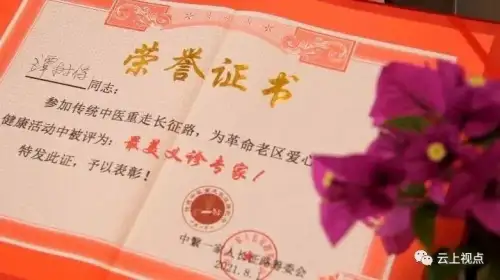 荣誉证书
同志:
参加传统中医重走长征路,为革命老区爱心
健康活动中被评为:最美义诊专家!
特发此证,予以表彰!
中繁一家人长征路筹委会
2021.8.
云上视点